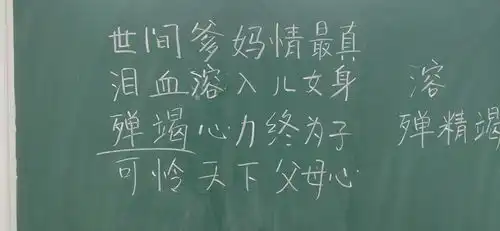 世间爹妈情最真
泪血溶入儿女身 溶
殚竭心力终为子 殚精竭
可怜天下父母心